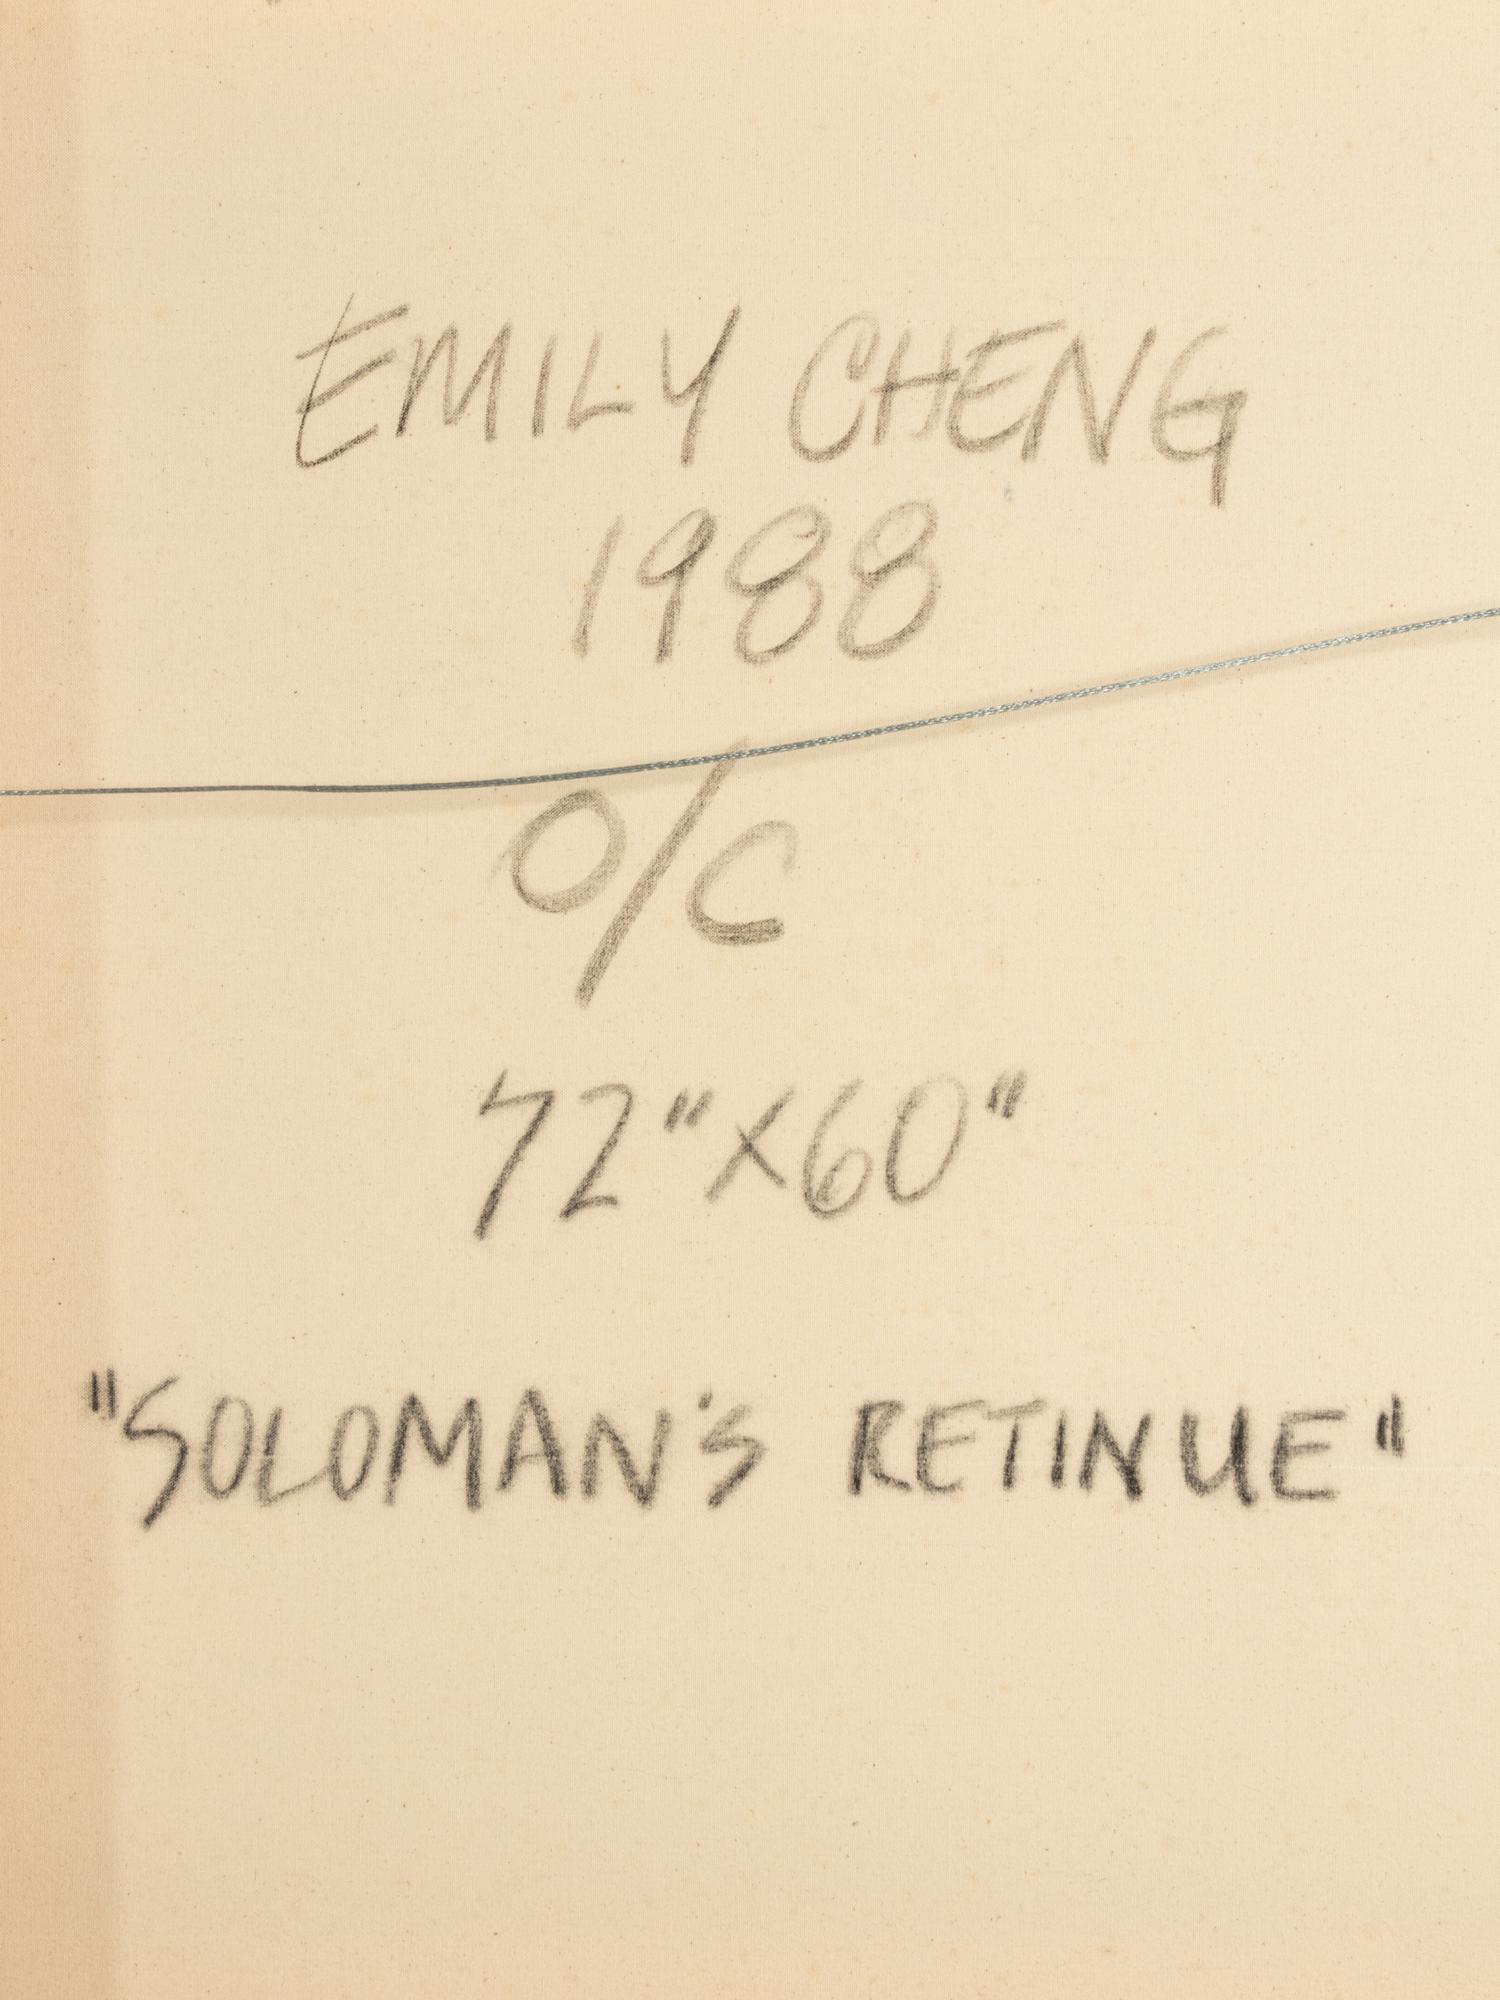 EMILY CHENG
1988
O/C
72"X60"
"SOLOMAN'S RETINUE"